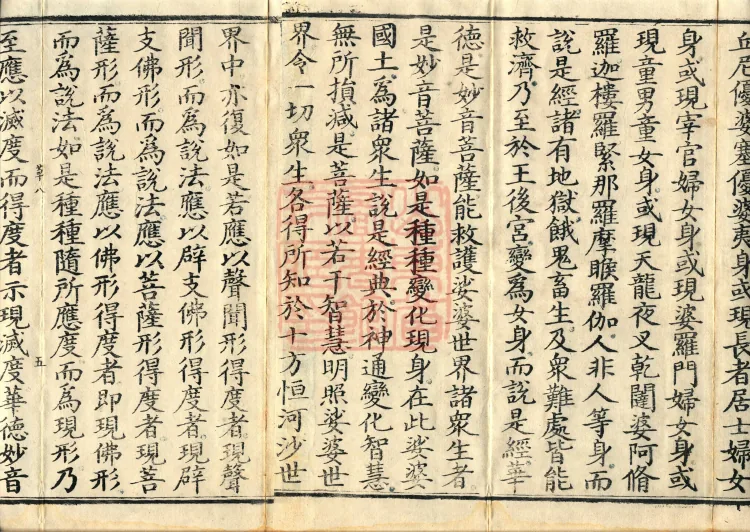 丘尼優婆塞優婆夷身或現長者居士婦女
身或現宰官婦女身或現婆羅門婦女身或
現童男童女身或現天龍夜叉乾闥婆阿脩
羅迦樓羅緊那羅摩睺羅伽人非人等身而
說是經諸有地獄餓鬼畜生及衆難處皆能
救濟乃至於王後宮變為女身而說是經華
德是妙音菩薩能救護娑婆世界諸衆生者
是妙音菩薩如是種種變化現身在此娑婆
國土為諸衆生說是經典於神通變化智慧
無所損減是菩薩以若干智慧明照娑婆世
界令一切衆生各得所知於十方恒河沙世
界中亦復如是若應以聲聞形得度者現聲
聞形而為說法應以辟支佛形得度者現辟
支佛形而為說法應以菩薩形得度者現菩
薩形而為說法應以佛形得度者即現佛形
而為說法如是種種隨所應度而為現形乃
五
至應以滅度而得度者示現滅度華德妙音